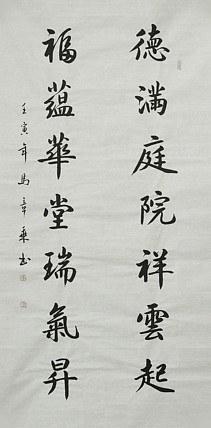 德滿庭院祥雲起
福蘊華堂瑞氣昇
壬寅年馬章乘書